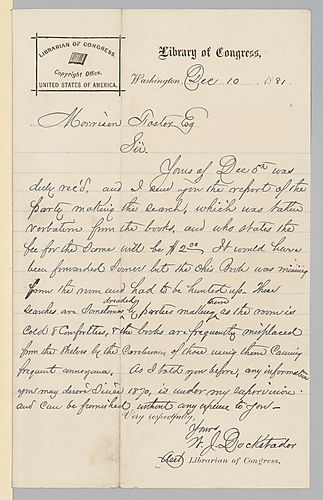 LIBRARIAN OF CONGRESS.
Copyright Office.
UNITED STATES OF AMERICA.
Library of Congress,
Washington, Dec 10 1881.
Morrison Foster Esq
Sir.
Yours of Dec 5th was
duly rec'd, and I send you the report of the
party making the search, which was taken
verbatim from the books, and who states the
fee for the same will be $2.00 It would have
been forwarded sooner but the Ohio Book was missing
from the room and had to be hunted up. These
dreaded them
searches are sometimes by parties making as the room is
cold & comfortless, & the books are frequently misplaced
from the shelves by the carelessness of those using them causing
frequent annoyance. As I told you before, any information
you may desire since 1870, is under my supervision
and can be furnished without any expense to you—
Very respectfully,
Yours
W. J. Dockstader
Asst Librarian of Congress.